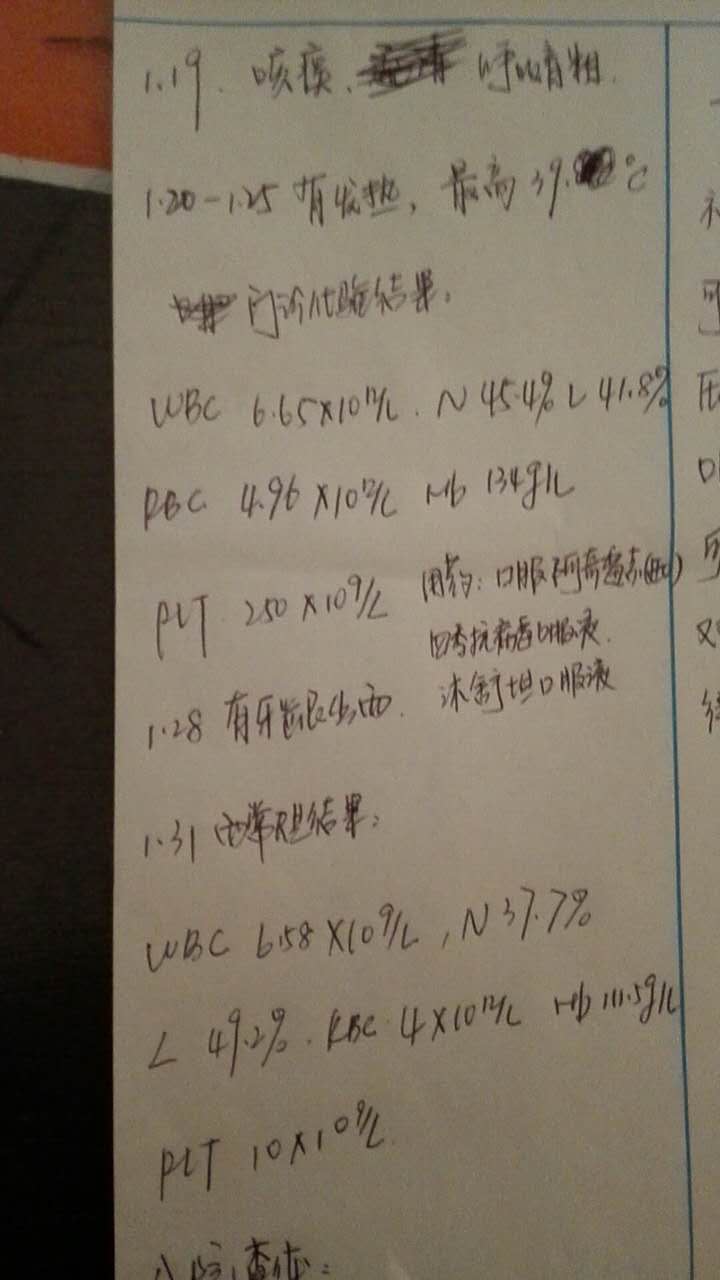 1.19. 咳痰、呼吸音粗.
1.20-1.25 有发热, 最高39. ℃
门诊化验结果:
WBC 6.65×10¹²/L. N 45.4% L 41.8%
RBC 4.96×10¹²/L Hb 134g/L
PLT 250×10⁹/L 用药: 口服阿奇霉素
抗病毒口服液.
1.28 有牙龈出血. 沐舒坦口服液
1.31 血常规结果:
WBC 6.58×10⁹/L, N 37.7%
L 49.2%. RBC 4×10¹²/L Hb 111.5g/L
PLT 10×10⁹/L.
入院查体: